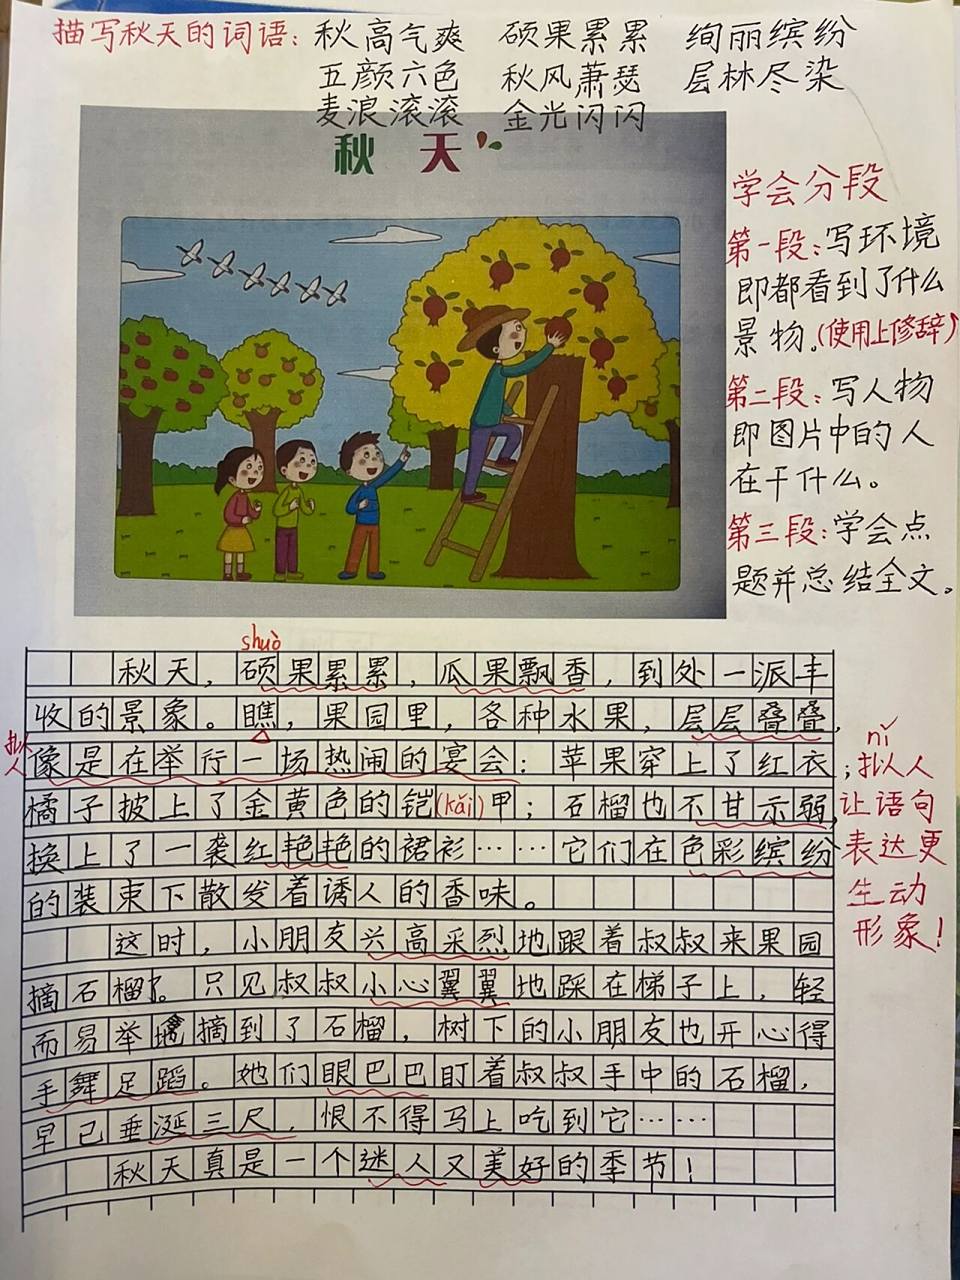 描写秋天的词语：秋高气爽 硕果累累 绚丽缤纷
五颜六色 秋风萧瑟 层林尽染
麦浪滚滚 金光闪闪
秋 天
学会分段
第一段：写环境
即都看到了什么
景物。（使用上修辞）
第二段：写人物
即图片中的人
在干什么。
第三段：学会点
题并总结全文。
shuò
秋天，硕果累累，瓜果飘香，到处一派丰
收的景象。瞧，果园里，各种水果，层层叠叠，
拟人
像是在举行一场热闹的宴会：苹果穿上了红衣；
橘子披上了金黄色的铠(kǎi)甲；石榴也不甘示弱，
换上了一袭红艳艳的裙衫……它们在色彩缤纷
的装束下散发着诱人的香味。
这时，小朋友兴高采烈地跟着叔叔来果园
摘石榴了。只见叔叔小心翼翼地踩在梯子上，轻
而易举地摘到了石榴，树下的小朋友也开心得
手舞足蹈。她们眼巴巴盯着叔叔手中的石榴，
早已垂涎三尺，恨不得马上吃到它……
秋天真是一个迷人又美好的季节！
nǐ
拟人
让语句
表达更
生动
形象！